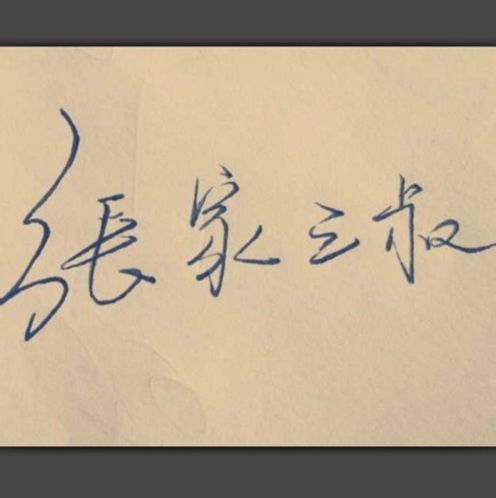 張家三叔